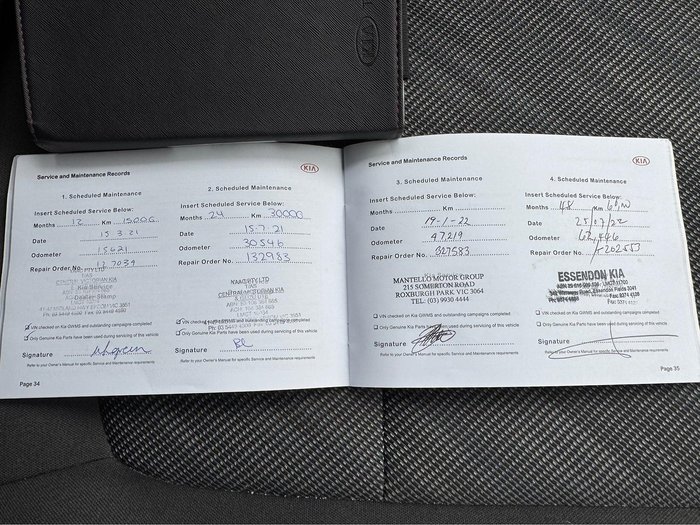 KIA
Service and Maintenance Records
KIA
1. Scheduled Maintenance
Insert Scheduled Service Below:
Months 12 Km 15000
Date 15.3.21
Odometer 15621
Repair Order No. 127039
Dealer Stamp
VIN checked on Kia GWMS and outstanding campaigns completed
Only Genuine Kia Parts have been used during servicing of this vehicle
Signature
Refer to your Owner's Manual for specific Service and Maintenance requirements
Page 34
2. Scheduled Maintenance
Insert Scheduled Service Below:
Months 24 Km 30000
Date 15.7.21
Odometer 30546
Repair Order No. 132983
CENTRAL VICTORIAN KIA
VIN checked on Kia GWMS and outstanding campaigns completed
Only Genuine Kia Parts have been used during servicing of this vehicle
Signature
Refer to your Owner's Manual for specific Service and Maintenance requirements
Service and Maintenance Records
KIA
3. Scheduled Maintenance
Insert Scheduled Service Below:
Months Km
Date 19-1-22
Odometer 47219
Repair Order No. 327583
MANTELLO MOTOR GROUP
215 SOMERTON ROAD
ROXBURGH PARK VIC 3064
TEL: (03) 9930 4444
VIN checked on Kia GWMS and outstanding campaigns completed
Only Genuine Kia Parts have been used during servicing of this vehicle
Signature
Refer to your Owner's Manual for specific Service and Maintenance requirements
4. Scheduled Maintenance
Insert Scheduled Service Below:
Months 48 Km
Date 25/07/22
Odometer 62,446
Repair Order No.
ESSENDON KIA
VIN checked on Kia GWMS and outstanding campaigns completed
Only Genuine Kia Parts have been used during servicing of this vehicle
Signature
Refer to your Owner's Manual for specific Service and Maintenance requirements
Page 35